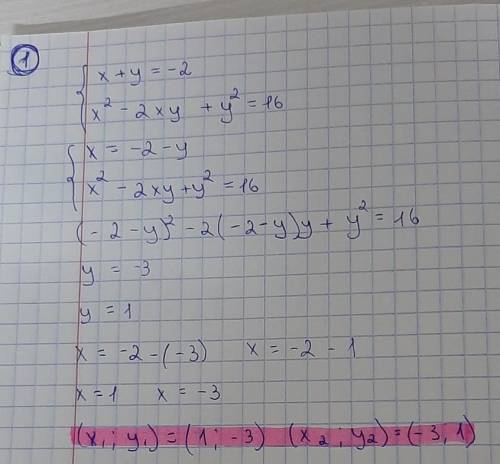 1
x + y = -2
x² - 2xy + y² = 16
x = -2 - y
x² - 2xy + y² = 16
(-2 - y)² - 2(-2 - y)y + y² = 16
y = -3
y = 1
x = -2 - (-3) x = -2 - 1
x = 1 x = -3
(x₁; y₁) = (1; -3) (x₂; y₂) = (-3; 1)